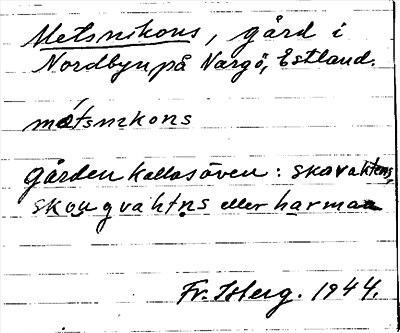 Metsnikons, gård i
Nordbyn på Nargö, Estland.
mǽtsnikons
gården kallas även: skovaktens,
skougvaktns eller harmaa
Fr. Isberg. 1944.